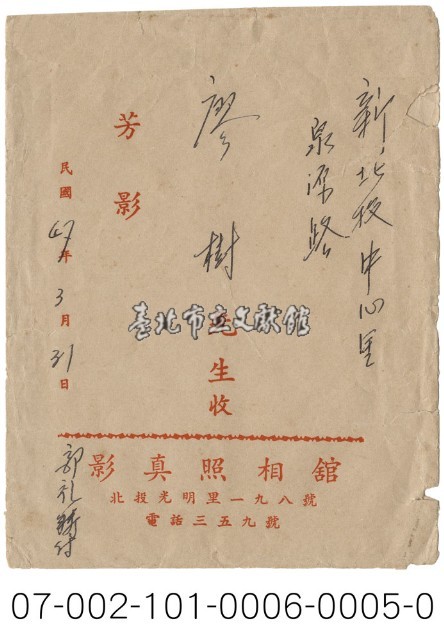 新北投中心里
泉源路
廖樹先生收
芳影
民國47年3月31日
臺北市立文獻館
影真照相舘
北投光明里一九八號
電話三五九號
郭礼
付
07-002-101-0006-0005-0